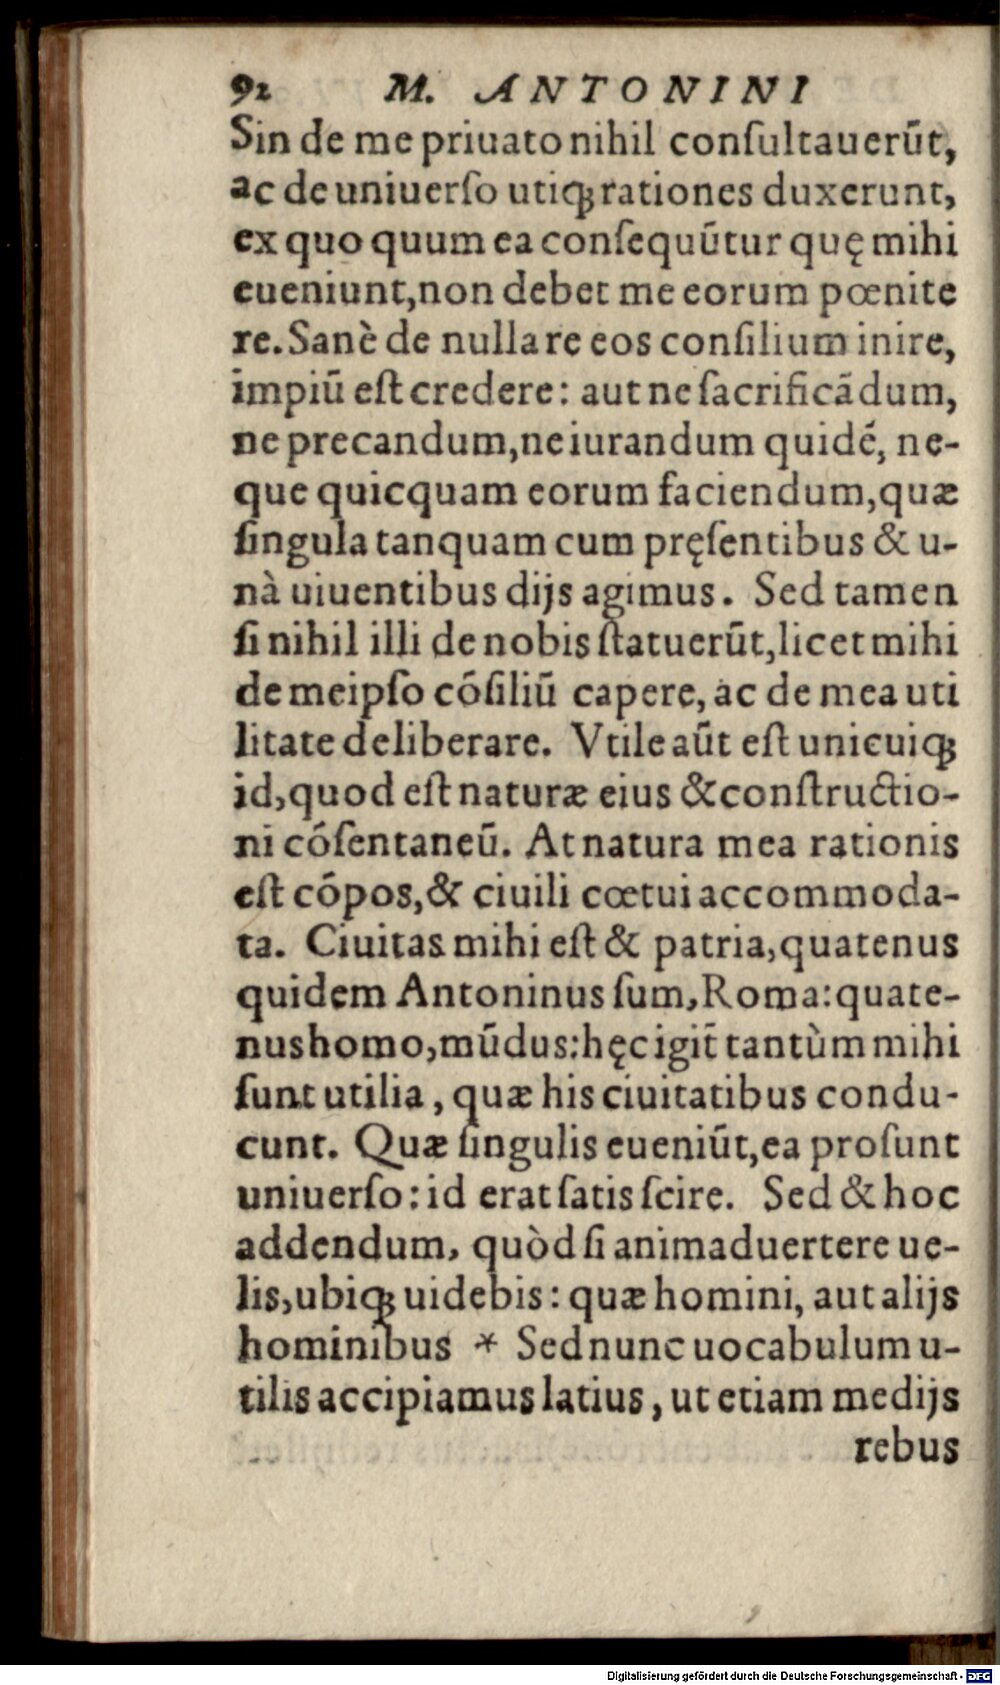 92 M. ANTONINI
Sin de me priuato nihil conſultauerūt,
ac de uniuerſo utiq; rationes duxerunt,
ex quo quum ea conſequūtur quę mihi
eueniunt, non debet me eorum pœnite
re. Sanè de nulla re eos conſilium inire,
impiū eſt credere: aut ne ſacrificādum,
ne precandum, ne iurandum quidē, ne-
que quicquam eorum faciendum, quæ
ſingula tanquam cum pręſentibus & u-
nà uiuentibus dijs agimus. Sed tamen
ſi nihil illi de nobis ſtatuerūt, licet mihi
de meipſo cōſiliū capere, ac de mea uti
litate deliberare. Vtile aūt eſt unicuiq;
id, quod eſt naturæ eius & conſtructio-
ni cōſentaneū. At natura mea rationis
eſt cōpos, & ciuili cœtui accommoda-
ta. Ciuitas mihi eſt & patria, quatenus
quidem Antoninus ſum, Roma: quate-
nus homo, mūdus: hęc igit̃ tantùm mihi
ſunt utilia, quæ his ciuitatibus condu-
cunt. Quæ ſingulis eueniūt, ea proſunt
uniuerſo: id erat ſatis ſcire. Sed & hoc
addendum, quòd ſi animaduertere ue-
lis, ubiq; uidebis: quæ homini, aut alijs
hominibus * Sed nunc uocabulum u-
tilis accipiamus latius, ut etiam medijs
rebus
Digitalisierung gefördert durch die Deutsche Forschungsgemeinschaft - DFG